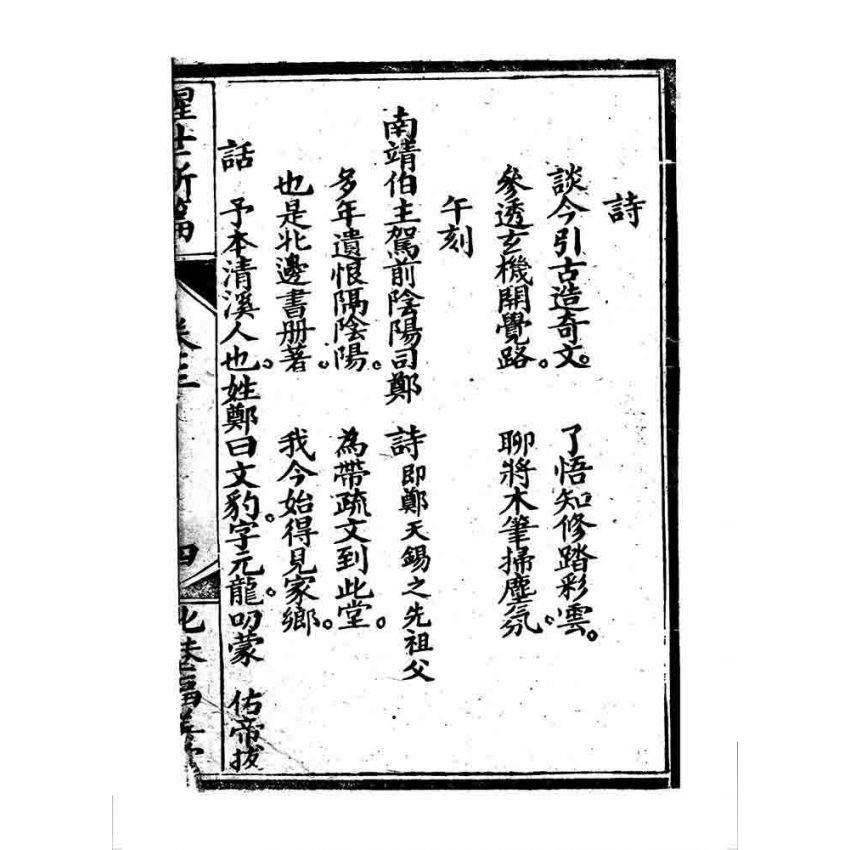 詩
談今引古造奇文。了悟知修踏彩雲。
參透玄機開覺路。聊將木筆掃塵氛。
午刻
南靖伯主駕前陰陽司鄭 詩 即鄭天錫之先祖父
多年遺恨隔陰陽。為帶疏文到此堂。
也是北邊書册著。我今始得見家鄉。
話 予本清溪人也。姓鄭曰文豹。字元龍。叨蒙 佑帝拔
醒世新篇 卷三 四